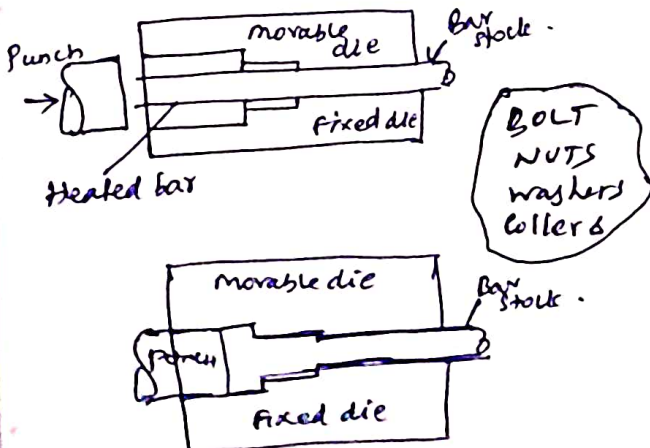 Punch
movable
die
Bar
stock.
Fixed die
Heated bar
BOLT
NUTS
washers
Collers
movable die
Bar
stock.
Punch
Fixed die